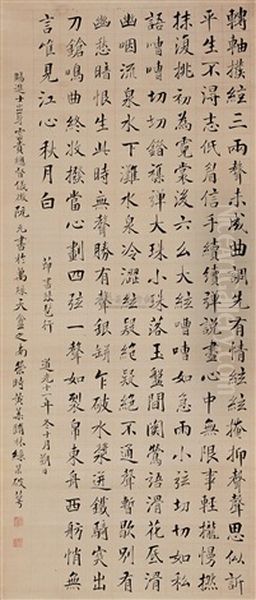 轉軸撥絃三兩聲未成曲調先有情絃絃掩抑聲聲思似訴
平生不得志低眉信手續續彈說盡心中無限事輕攏慢撚
抹復挑初為霓裳後六么大絃嘈嘈如急雨小弦切切如私
語嘈嘈切切錯雜彈大珠小珠落玉盤間關鶯語滑花底滑
幽咽流泉水下灘水泉冷澀絃疑絕疑絕不通聲暫歇別有
幽愁暗恨生此時無聲勝有聲銀缾乍破水漿迸鐵騎突出
刀鎗鳴曲終收撥當心劃四弦一聲如裂帛東舟西舫悄無
言唯見江心秋月白
節書琵琶行 道光十一年冬十月朔日
賜進士出身雲貴總督儀徵阮元書於萬綠天盦之南榮時黃葉鋪林綠破萼